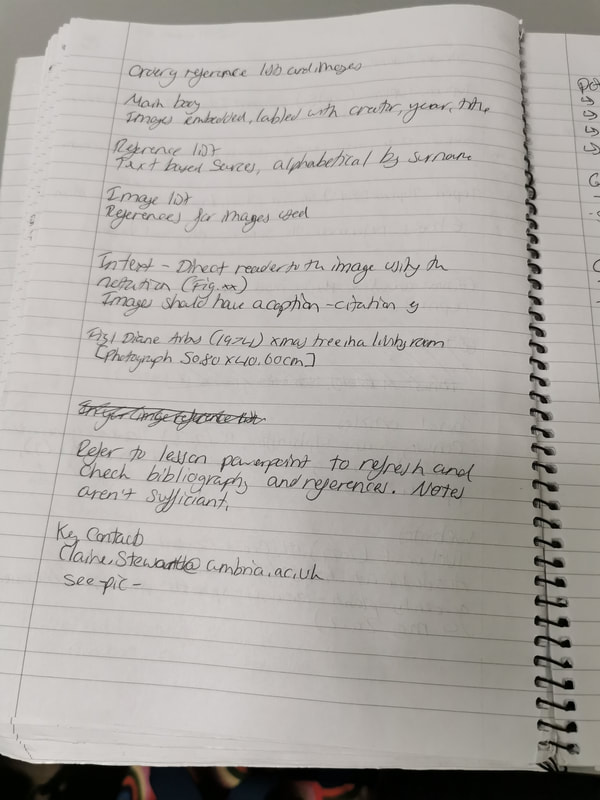 Ordery reference list and images
Main body
Images embedded, labled with creator, year, title
Reference list
Text based sources, alphabetical by surname
Image list
References for images used
Intext - Direct reader to th image using th
notation (Fig.xx)
Images should have a caption - citation eg
Fig1 Diane Arbus (1974) xmas tree in a living room
[photograph 50.80 x 40.60cm]
Refer to lesson powerpoint to refresh and
check bibliography and references. Notes
aren't sufficiant.
Key Contacts
@cumbria.ac.uk
see pic -
Pot